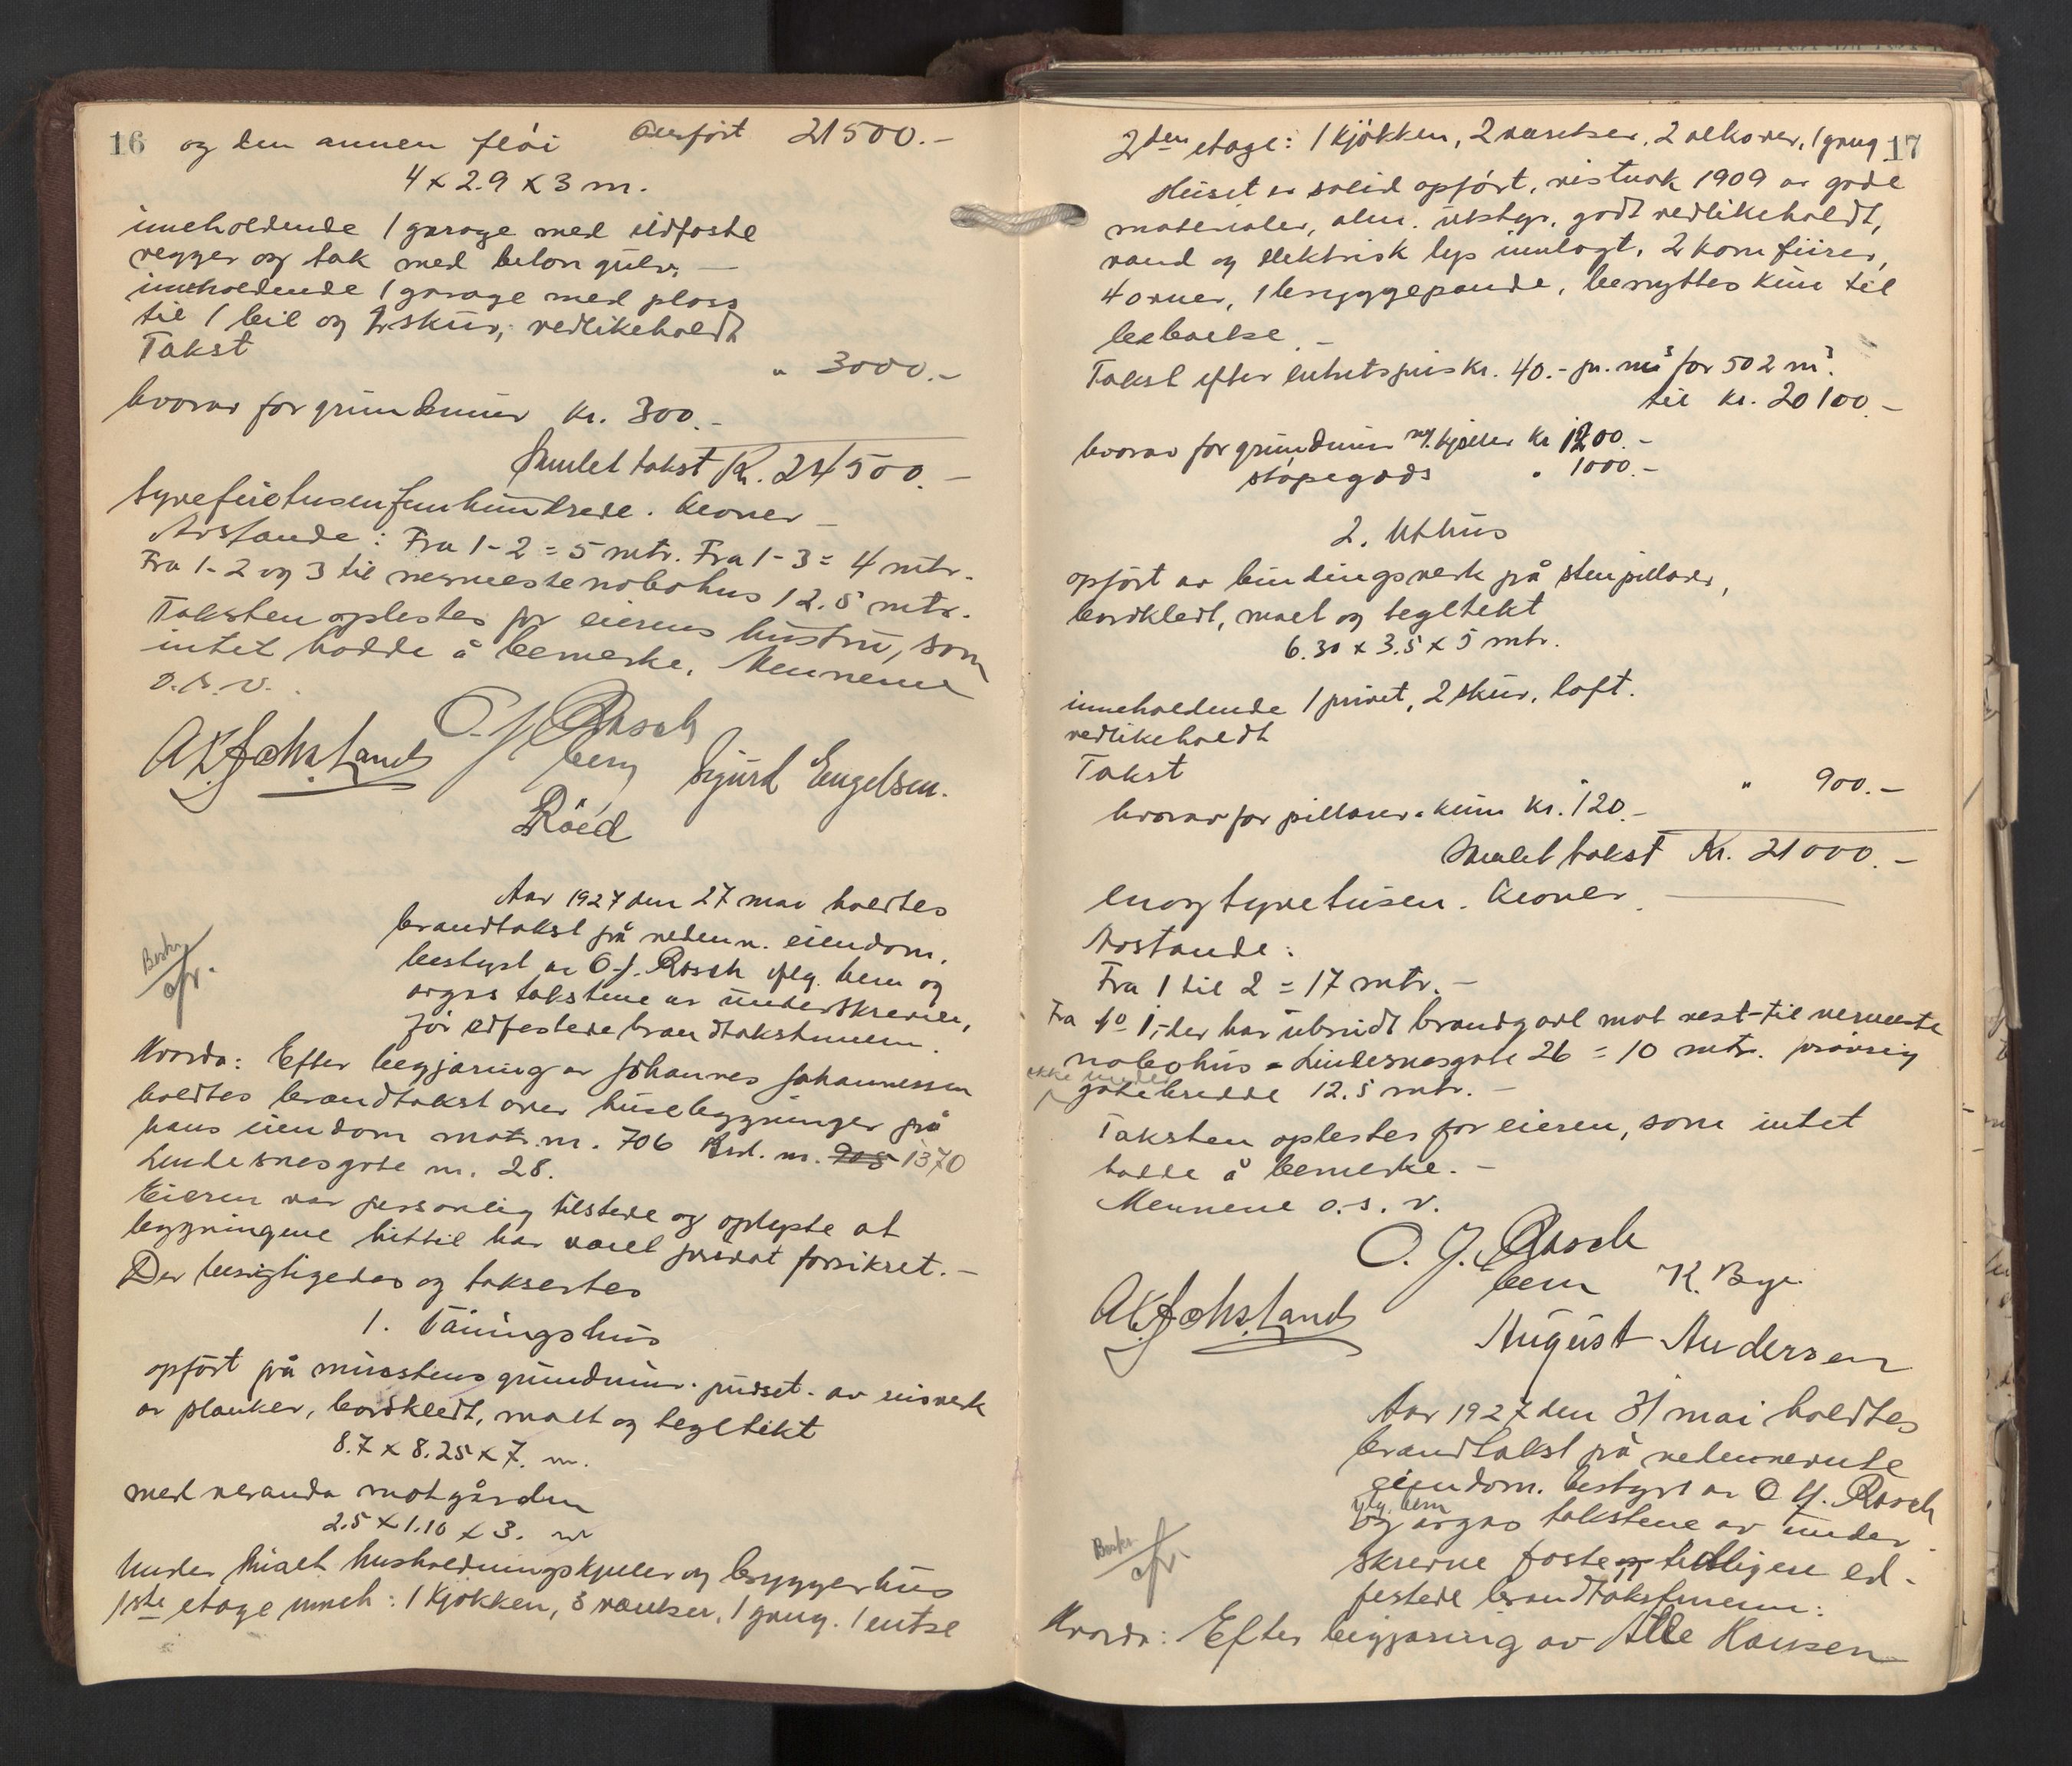 16 og den annen fløi Overført 21500.-
4 x 2.9 x 3 m.
inneholdende 1 garage med ildfaste
vegger og tak med betongulv. —
inneholdende 1 garage med plass
til 1 bil og 2 skur, vedlikeholdt
Takst " 3000.-
hvorav for grundmur kr. 300.-
Samlet takst Kr. 24500.-
tyvefiretusenfemhundrede. kroner —
Avstande: Fra 1-2 = 5 mtr. Fra 1-3 = 4 mtr.
Fra 1-2 og 3 til nermeste nabohus 12.5 mtr.
Taksten oplestes for eierens hustru, som
intet hadde å bemerke. Mennene
o.s.v.
O. J. Rasch
bem
Sigurd Engelsen.
Röed
Aar 1927 den 27 mai holdtes
brandtakst på nedenn. eiendom,
bestyrt av O. J. Rasch iflg. bem og
avgas takstene av underskrevne,
før edfestede brandtakstmenn.
Beskr.
afr.
Hvorda: Efter begjæring av Johannes Johannessen
holdtes brandtakst over husebygninger på
hans eiendom matr. nr. 706 Brd. nr. 905 1370
Lindesnesgate nr. 28.
Eieren var personlig tilstede og oplyste at
bygningene hittil har været privat forsikret. —
Der besigtigedes og taksertes
1. Våningshus
opført på murstens grundmur. pusset. av reisverk
av planker, bordkledt, malt og tegltekt
8.7 x 8.25 x 7. m.
med veranda mot gården
2.5 x 1.10 x 3. m
Under huset husholdningskjeller og bryggerhus
1ste etage inneh: 1 kjøkken, 3 værelser, 1 gang. 1 entre
2den etage: 1 kjøkken, 2 værelser, 2 alkover, 1 gang 17
Huset er solid opført, vistnok 1909 av gode
materialer, alm. utstyr, godt vedlikeholdt,
vand og elektrisk lys innlagt, 2 komfurer,
4 ovner, 1 bryggepande, benyttes kun til
beboelse. —
Takst efter enhetspris kr. 40.- pr. m³ for 502 m³.
til kr. 20100.-
hvorav for grundmur m/ kjeller kr 1200.-
støpegods " 1000.-
2. Uthus
opført av bindingsverk på stenpillarer,
bordkledt, malt og tegltekt
6.30 x 3.5 x 5 mtr.
inneholdende 1 privet, 2 skur, loft.
vedlikeholdt
Takst " 900.-
hvorav for pillarer. kun kr. 120.-
Samlet takst Kr. 21000.-
enogtyvetusen. kroner.
Avstande:
Fra 1 til 2 = 17 mtr. -
Fra 1, der har ubrudt brandgavl mot vest - til nermeste
nabohus - Lindesnesgate 26 = 10 mtr.
ikke under
gatebredde 12.5 mtr. —
Taksten oplestes for eieren, som intet
hadde å bemerke. —
Mennene o. s. v.
O. J. Rasch
bem K. Bye.
August Andersen
Aar 1927 den 31 mai holdtes
brandtakst på nedennevnte
eiendom. bestyrt av O. J. Rasch
iflg. bem
og avgas takstene av under
skrevne faste og tidligere ed-
festede brandtakstmenn:
Beskr.
afr.
Hvorda: Efter begjæring av Alle Hansen